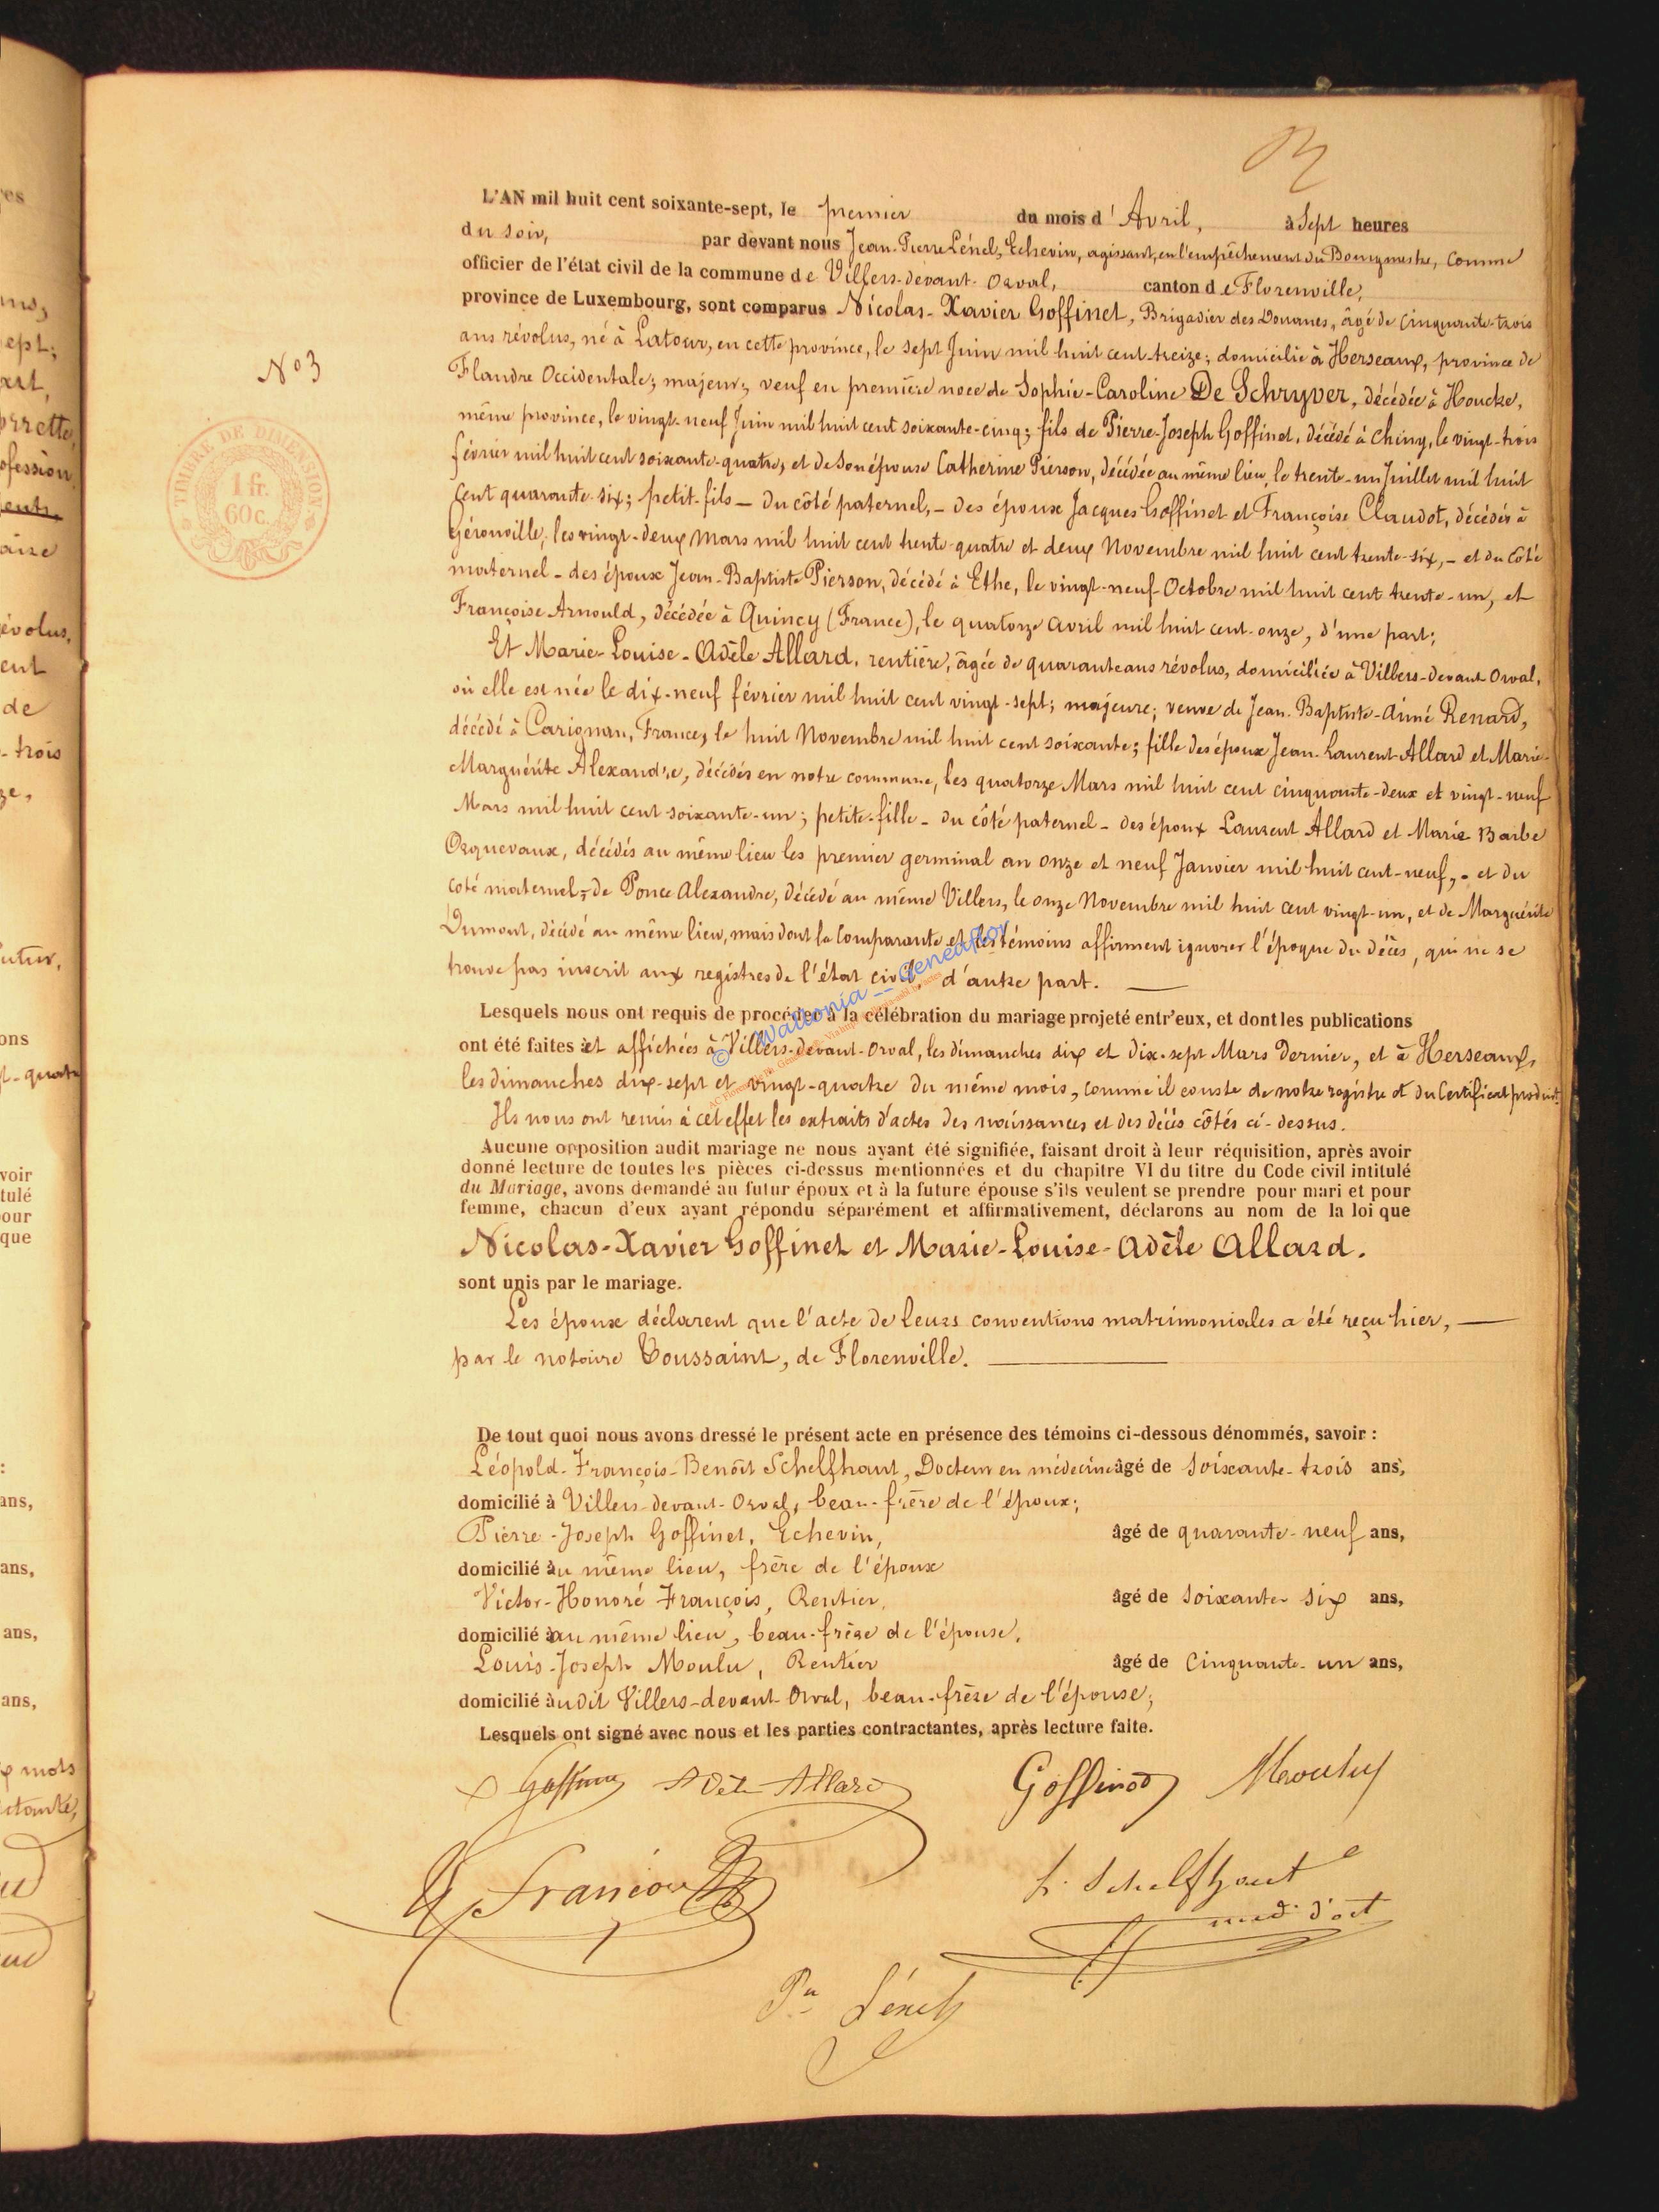 L'AN mil huit cent soixante-sept, le premier du mois d'Avril, à Sept heures
du soir, par devant nous Jean-Pierre Lénel, Echevin, agissant, en l'empêchement du Bourgmestre, comme
officier de l'état civil de la commune de Villers-devant-Orval, canton de Florenville,
province de Luxembourg, sont comparus Nicolas-Xavier Goffinet, Brigadier des Douanes, âgé de cinquante-trois
ans révolus, né à Latour, en cette province, le sept Juin mil huit cent treize; domicilié à Herseaux, province de
N° 3
Flandre Occidentale; majeur; veuf en première noce de Sophie-Caroline De Schryver, décédée à Houcke,
même province, le vingt-neuf Juin mil huit cent soixante-cinq; fils de Pierre-Joseph Goffinet, décédé à Chiny, le vingt-trois
TIMBRE DE DIMENSION
1 fr.
60c.
février mil huit cent soixante-quatre, et de son épouse Catherine Pierson, décédée au même lieu, le trente-un Juillet mil huit
cent quarante-six; petit-fils — du côté paternel, — des époux Jacques Goffinet et Françoise Claudot, décédés à
Gérouville, les vingt-deux Mars mil huit cent trente-quatre et deux Novembre mil huit cent trente-six, — et du côté
maternel — des époux Jean-Baptiste Pierson, décédé à Ethe, le vingt-neuf Octobre mil huit cent trente-un, et
Françoise Arnould, décédée à Quincy (France), le quatorze avril mil huit cent-onze, d'une part;
Et Marie-Louise-Adèle Allard, rentière, âgée de quarante ans révolus, domiciliée à Villers-devant-Orval,
où elle est née le dix-neuf février mil huit cent vingt-sept; majeure; veuve de Jean-Baptiste-Aimé Renard,
décédé à Carignan, France, le huit Novembre mil huit cent soixante; fille des époux Jean-Laurent Allard et Marie-
Marguérite Alexandre, décédés en notre commune, les quatorze Mars mil huit cent cinquante-deux et vingt-neuf
Mars mil huit cent soixante-un; petite-fille — du côté paternel — des époux Laurent Allard et Marie Barbe
Orquevaux, décédés au même lieu les premier germinal an onze et neuf Janvier mil huit cent-neuf, — et du
coté maternel, — de Ponce Alexandre, décédé au même Villers, le onze Novembre mil huit cent vingt-un, et de Marguérite
Dumont, décédé au même lieu, mais dont la Comparante et les témoins affirment ignorer l'époque du décès, qui ne se
trouve pas inscrit aux registres de l'état civil, d'autre part. —
Lesquels nous ont requis de procéder à la célébration du mariage projeté entr'eux, et dont les publications
ont été faites et affichées à Villers-devant-Orval, les dimanches dix et dix-sept Mars dernier, et à Herseaux,
les dimanches dix-sept et vingt-quatre du même mois, comme il conste de notre registre et du Certificat produit.
Ils nous ont remis à cet effet les extraits d'actes des naissances et des décès côtés ci-dessus.
© Wallonia -- Geneaflor
Aucune opposition audit mariage ne nous ayant été signifiée, faisant droit à leur réquisition, après avoir
donné lecture de toutes les pièces ci-dessus mentionnées et du chapitre VI du titre du Code civil intitulé
du Mariage, avons demandé au futur époux et à la future épouse s'ils veulent se prendre pour mari et pour
femme, chacun d'eux ayant répondu séparément et affirmativement, déclarons au nom de la loi que
Nicolas-Xavier Goffinet et Marie-Louise-Adèle Allard.
sont unis par le mariage.
Les époux déclarent que l'acte de leurs conventions matrimoniales a été reçu hier, —
par le notaire Toussaint, de Florenville. —
De tout quoi nous avons dressé le présent acte en présence des témoins ci-dessous dénommés, savoir :
Léopold-François-Benoît Schelfhaut, Docteur en médecine âgé de soixante-trois ans,
domicilié à Villers-devant-Orval, beau-frère de l'époux;
Pierre-Joseph Goffinet, Echevin, âgé de quarante-neuf ans,
domicilié au même lieu, frère de l'époux
Victor-Honoré François, Rentier, âgé de soixante six ans,
domicilié au même lieu, beau-frère de l'épouse,
Louis-Joseph Moulu, Rentier âgé de Cinquante-un ans,
domicilié audit Villers-devant-Orval, beau-frère de l'épouse;
Lesquels ont signé avec nous et les parties contractantes, après lecture faite.
X Goffinet Adèle Allard Goffinet Moulu
V François L. Schelfhaut
med. doct
Lénel